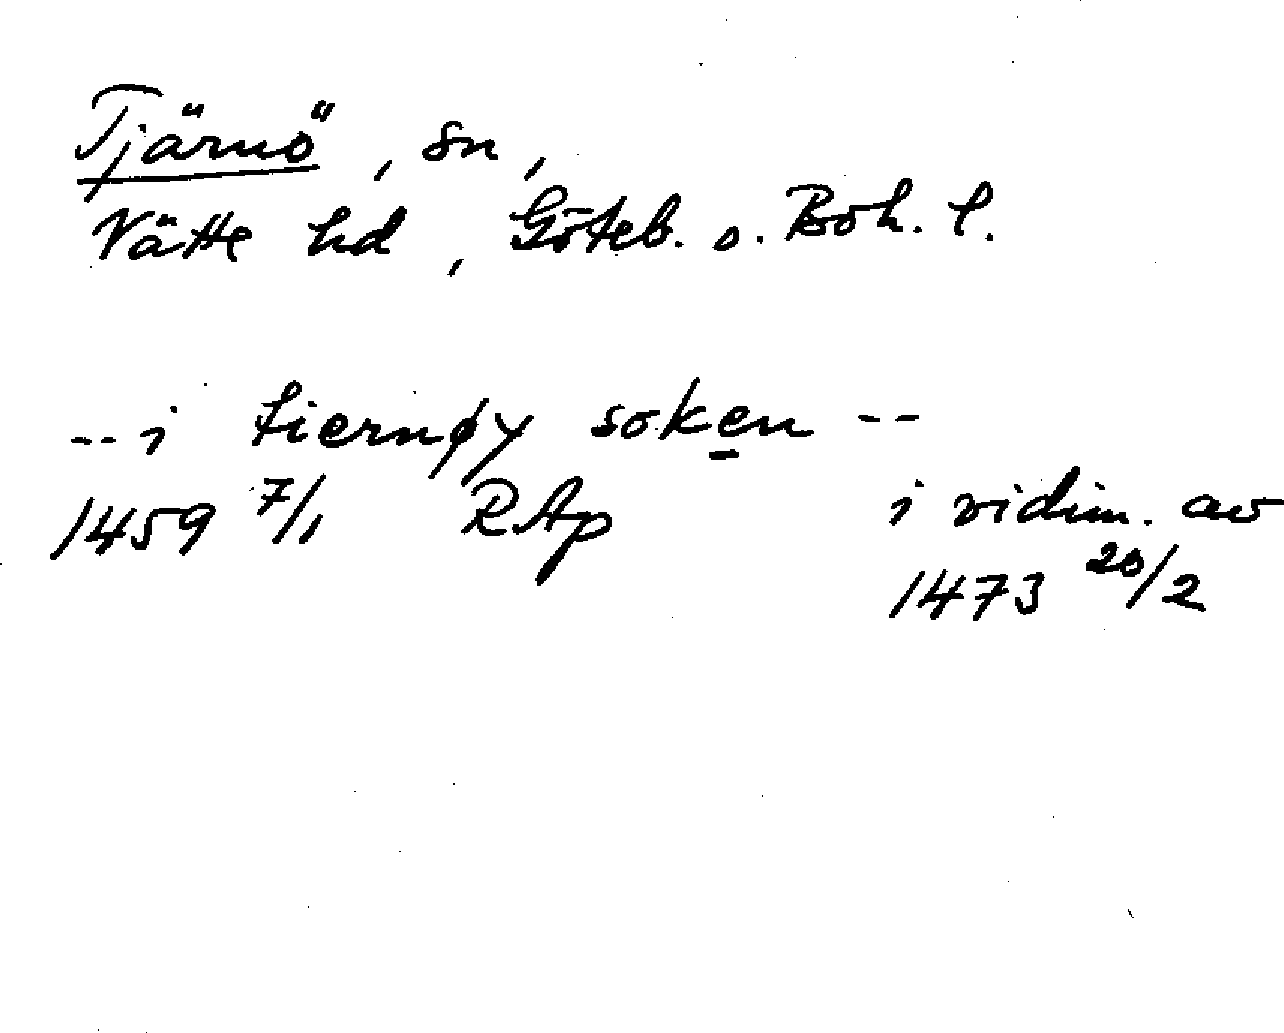 Tjärnö, sn,
Vätte hd, Göteb. o. Boh. l.
-- i tiernøy soken --
1459 7/1 RAp i vidim. av
1473 20/2